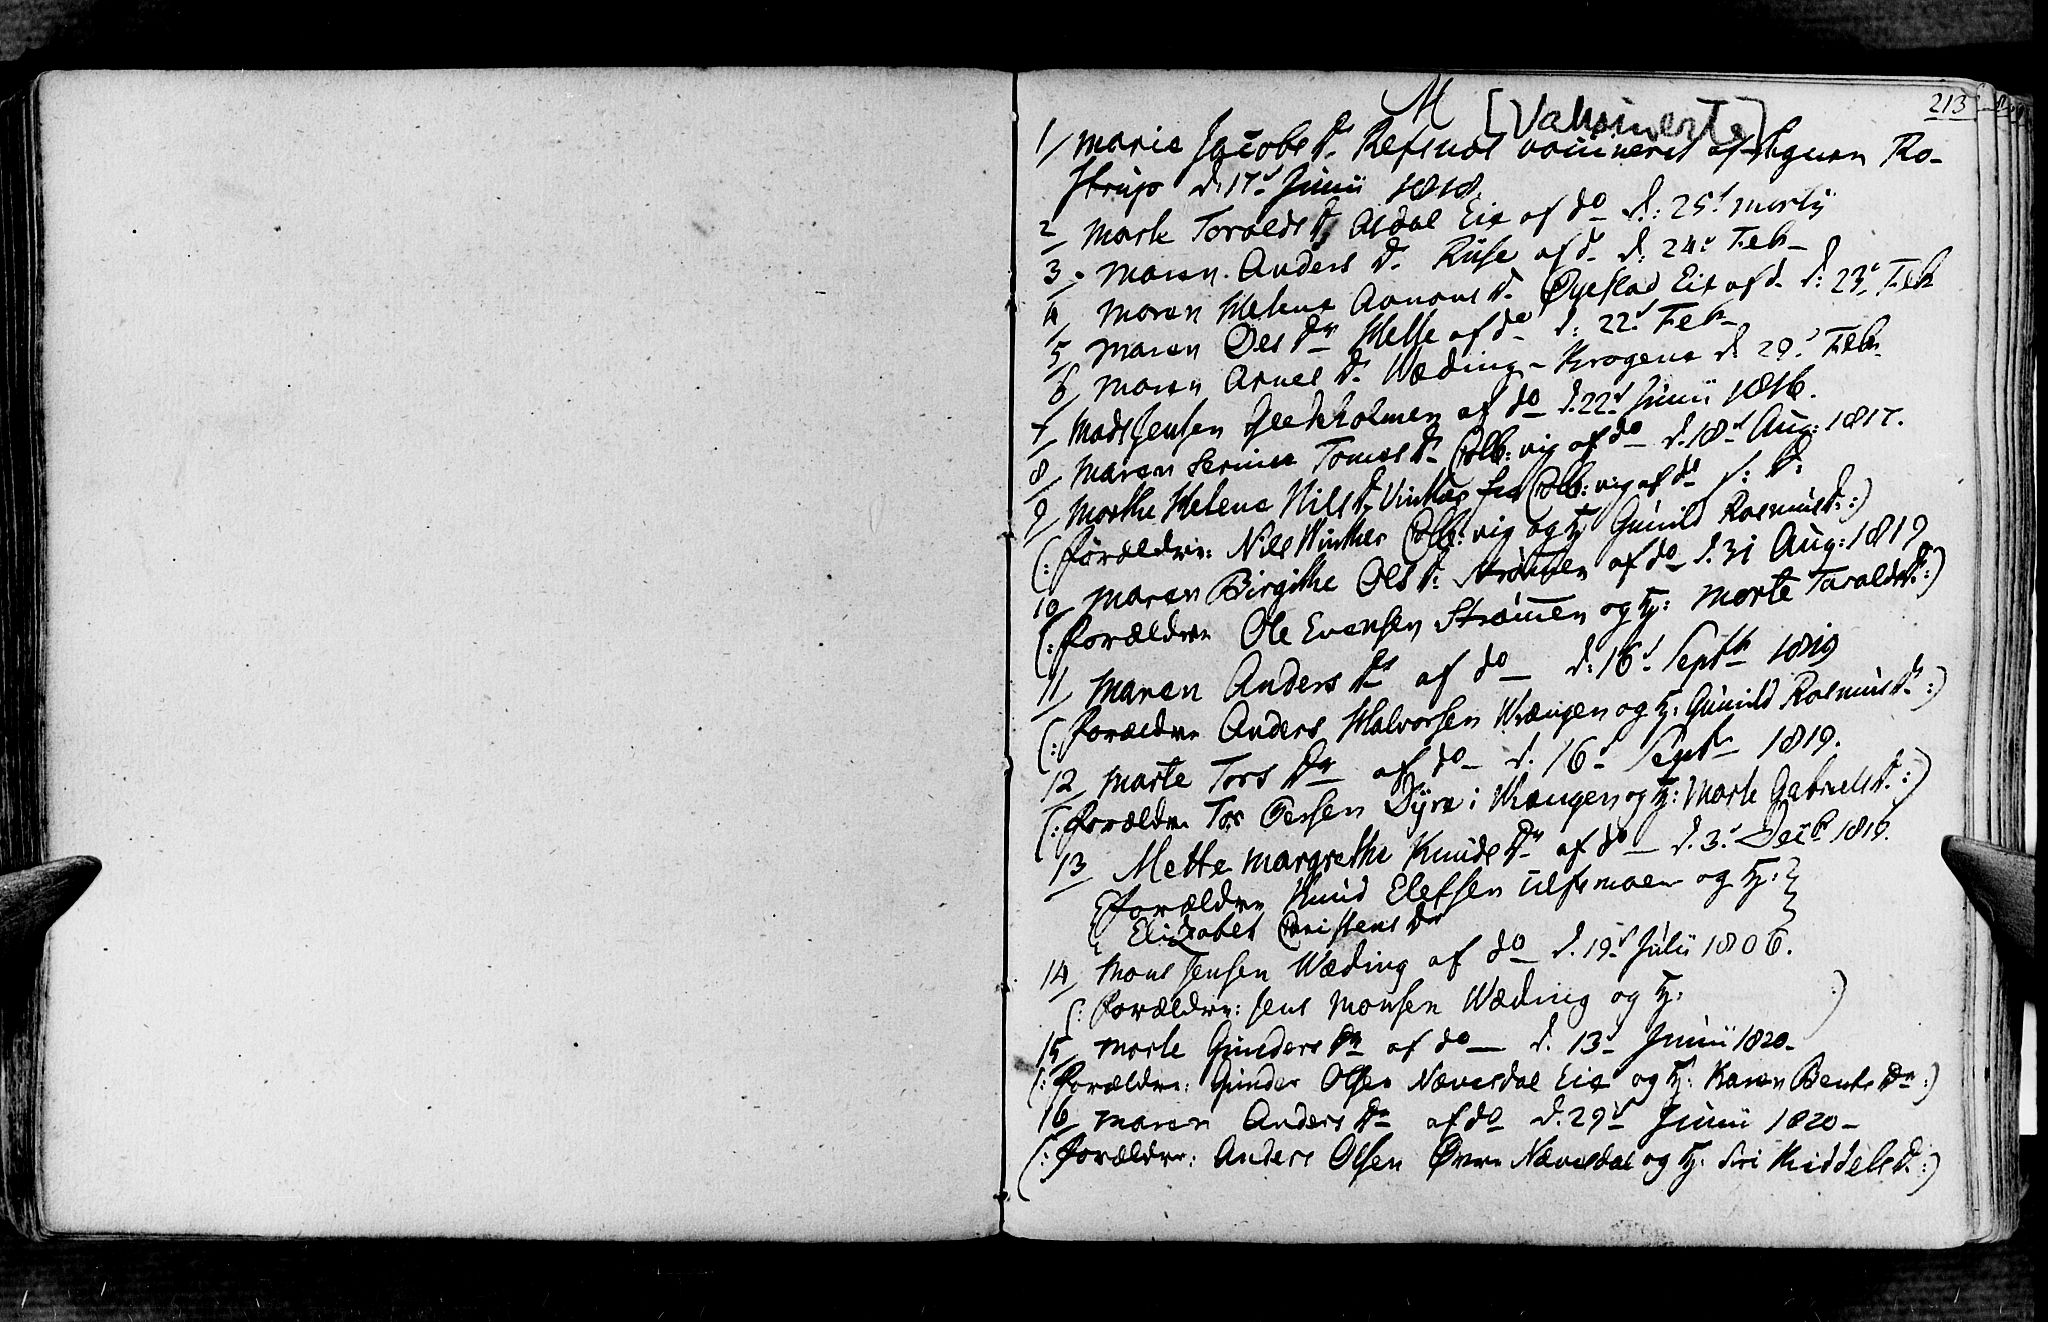 213
M [Vaksinerte]
1/ Marie Jacobs D. Refsnæs vaccineret af Agnen Ro-
strup d. 17d Junii 1818.
2/ Marte Toralds D. Asdal Eie af do d: 25d Martij
3/ Maren Anders D. Rüse af do d: 24d Feb
4/ Maren Helene Aanons D. Øyestad Eie af do d: 23d Feb
5/ Maren Oles Dr Helle af do d: 22d Feb
6/ Maren Arnes D. Wæding-Krogene d. 29d Feb
7/ Mads Jensen af do d. 22d Junii 1816.
8/ Maren Serine Tomes D. Colb:vig af do d. 18d Aug: 1817.
9/ Marthe Helene Nils D. Vinther fra Colb:vig af do s: D:
(: forældre: Nils Winther Colb:vig og H: Gunild Rasmus D. :)
10/ Maren Birgithe Oles D: Strømen af do d. 31 Aug: 1819
(: forældre Ole Evensen Strømen og H: Marte Taralds D. :)
11/ Maren Anders Dr af do d: 16d Septb 1819
(: forældre Anders Halvorsen Wrængen og H: Gunild Rasmus D. :)
12/ Marte Tors Dr af do d. 16d Septb 1819.
(: forældre Tor Oensen Dyre i Wrængen og H: Marte Gabriels D. :)
13/ Mette Margrethe Knuds Dr af do d. 3d Decb 1819.
forældre Knud Elefsen og H:
Elisabet Cristens Dr
14/ Mons Jensen Wæding af do d. 19d Julii 1806.
(: forældre: Jens Monsen Wæding og H: )
15/ Marte Gunders Dr af do d. 13d Junii 1820
(: forældre: Gunder Olsen Nævesdal Eie og H: Karen Bents Dr :)
16/ Maren Anders Dr af do d. 29d Junii 1820
(: forældre: Anders Olsen Øvre Nævesdal og H: Siri Kiddels D. :)